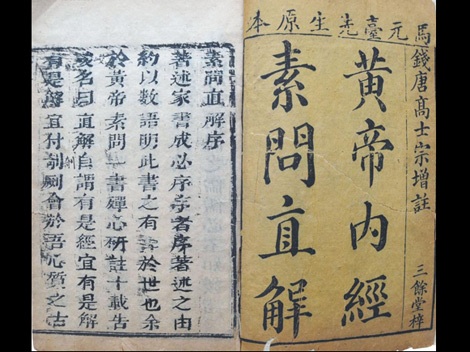 馬元臺先生原本
錢唐高士宗增註
黃帝內經
素問直解
三餘堂梓
素問直解序
著述家書成必序序者序著述之由
約以數語明此書之有裨於世也余
於黃帝素問一書殫心研註十載告
竣名曰直解自謂有是經宜有是解
有是解宜付剞劂會於吾心質之古